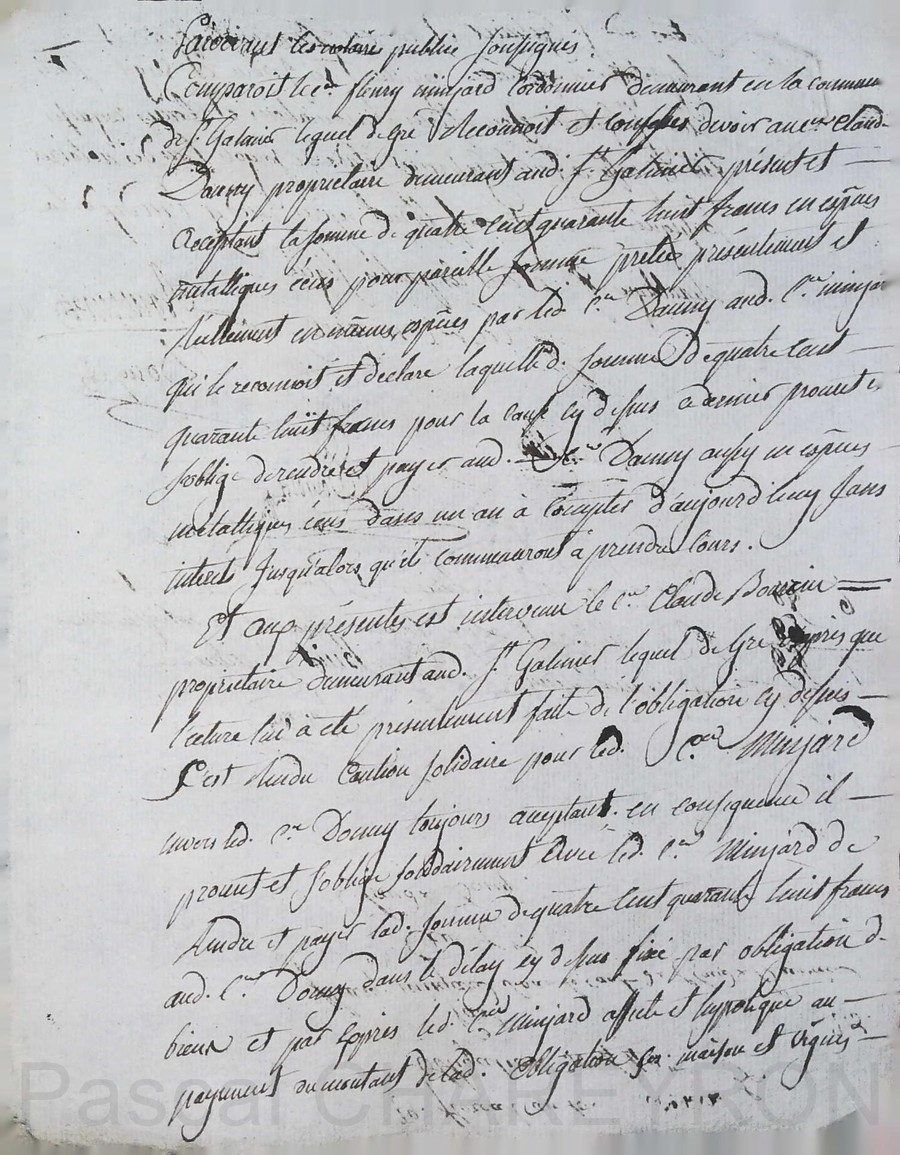 Pardevant les notaires publics soussignés
Comparoit le c.en fleury minjard Cordonnier demeurant en la commune
de S.t Galmier lequel de gré Reconnoit et confesse devoir au c.en Claude
Danny proprietaire demeurant aud. S.t Galmier présent et —
acceptant la somme de quatre cent quarante huit francs en espèces
metalliques écus pour pareille somme pretée présentement et
Réellement en mêmes espèces par led. C.en Danny aud. C.en minjar
qui le reconnoit et declare laquelle d. somme de quatre cent —
quarante huit francs pour la cause cy dessus ce dernier promet et
s'oblige de rendre et payer aud. C.en Danny aussy en espèces —
métalliques écus dans un an à Compter d'aujourd'huy sans
interet Jusqu'alors qu'ils commenceront à prendre Cours.
Et aux présentes est intervenu le c.en Claude
proprietaire demeurant aud. S.t Galmier lequel de Gré après que
lecture lui a été présentement faite de l'obligation cy dessus —
s'est Rendu Caution solidaire pour led. C.en Minjard
envers led. C.en Donny toujours acceptant. en conséquence il —
promet et s'oblige solidairement avec led. C.en Minjard de
Rendre et payer lad. somme de quatre Cent quarante huit francs
aud. C.en Donny dans le délay cy dessus fixé par obligation de
biens et par Exprès led. C.en Minjard affecte et hypotèque au —
payement du montant de lad. Obligation ses maison et vignes —
Pascal CHAREYRON